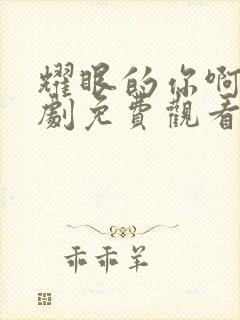 耀眼的你啊
劇免費觀看
乖乖羊